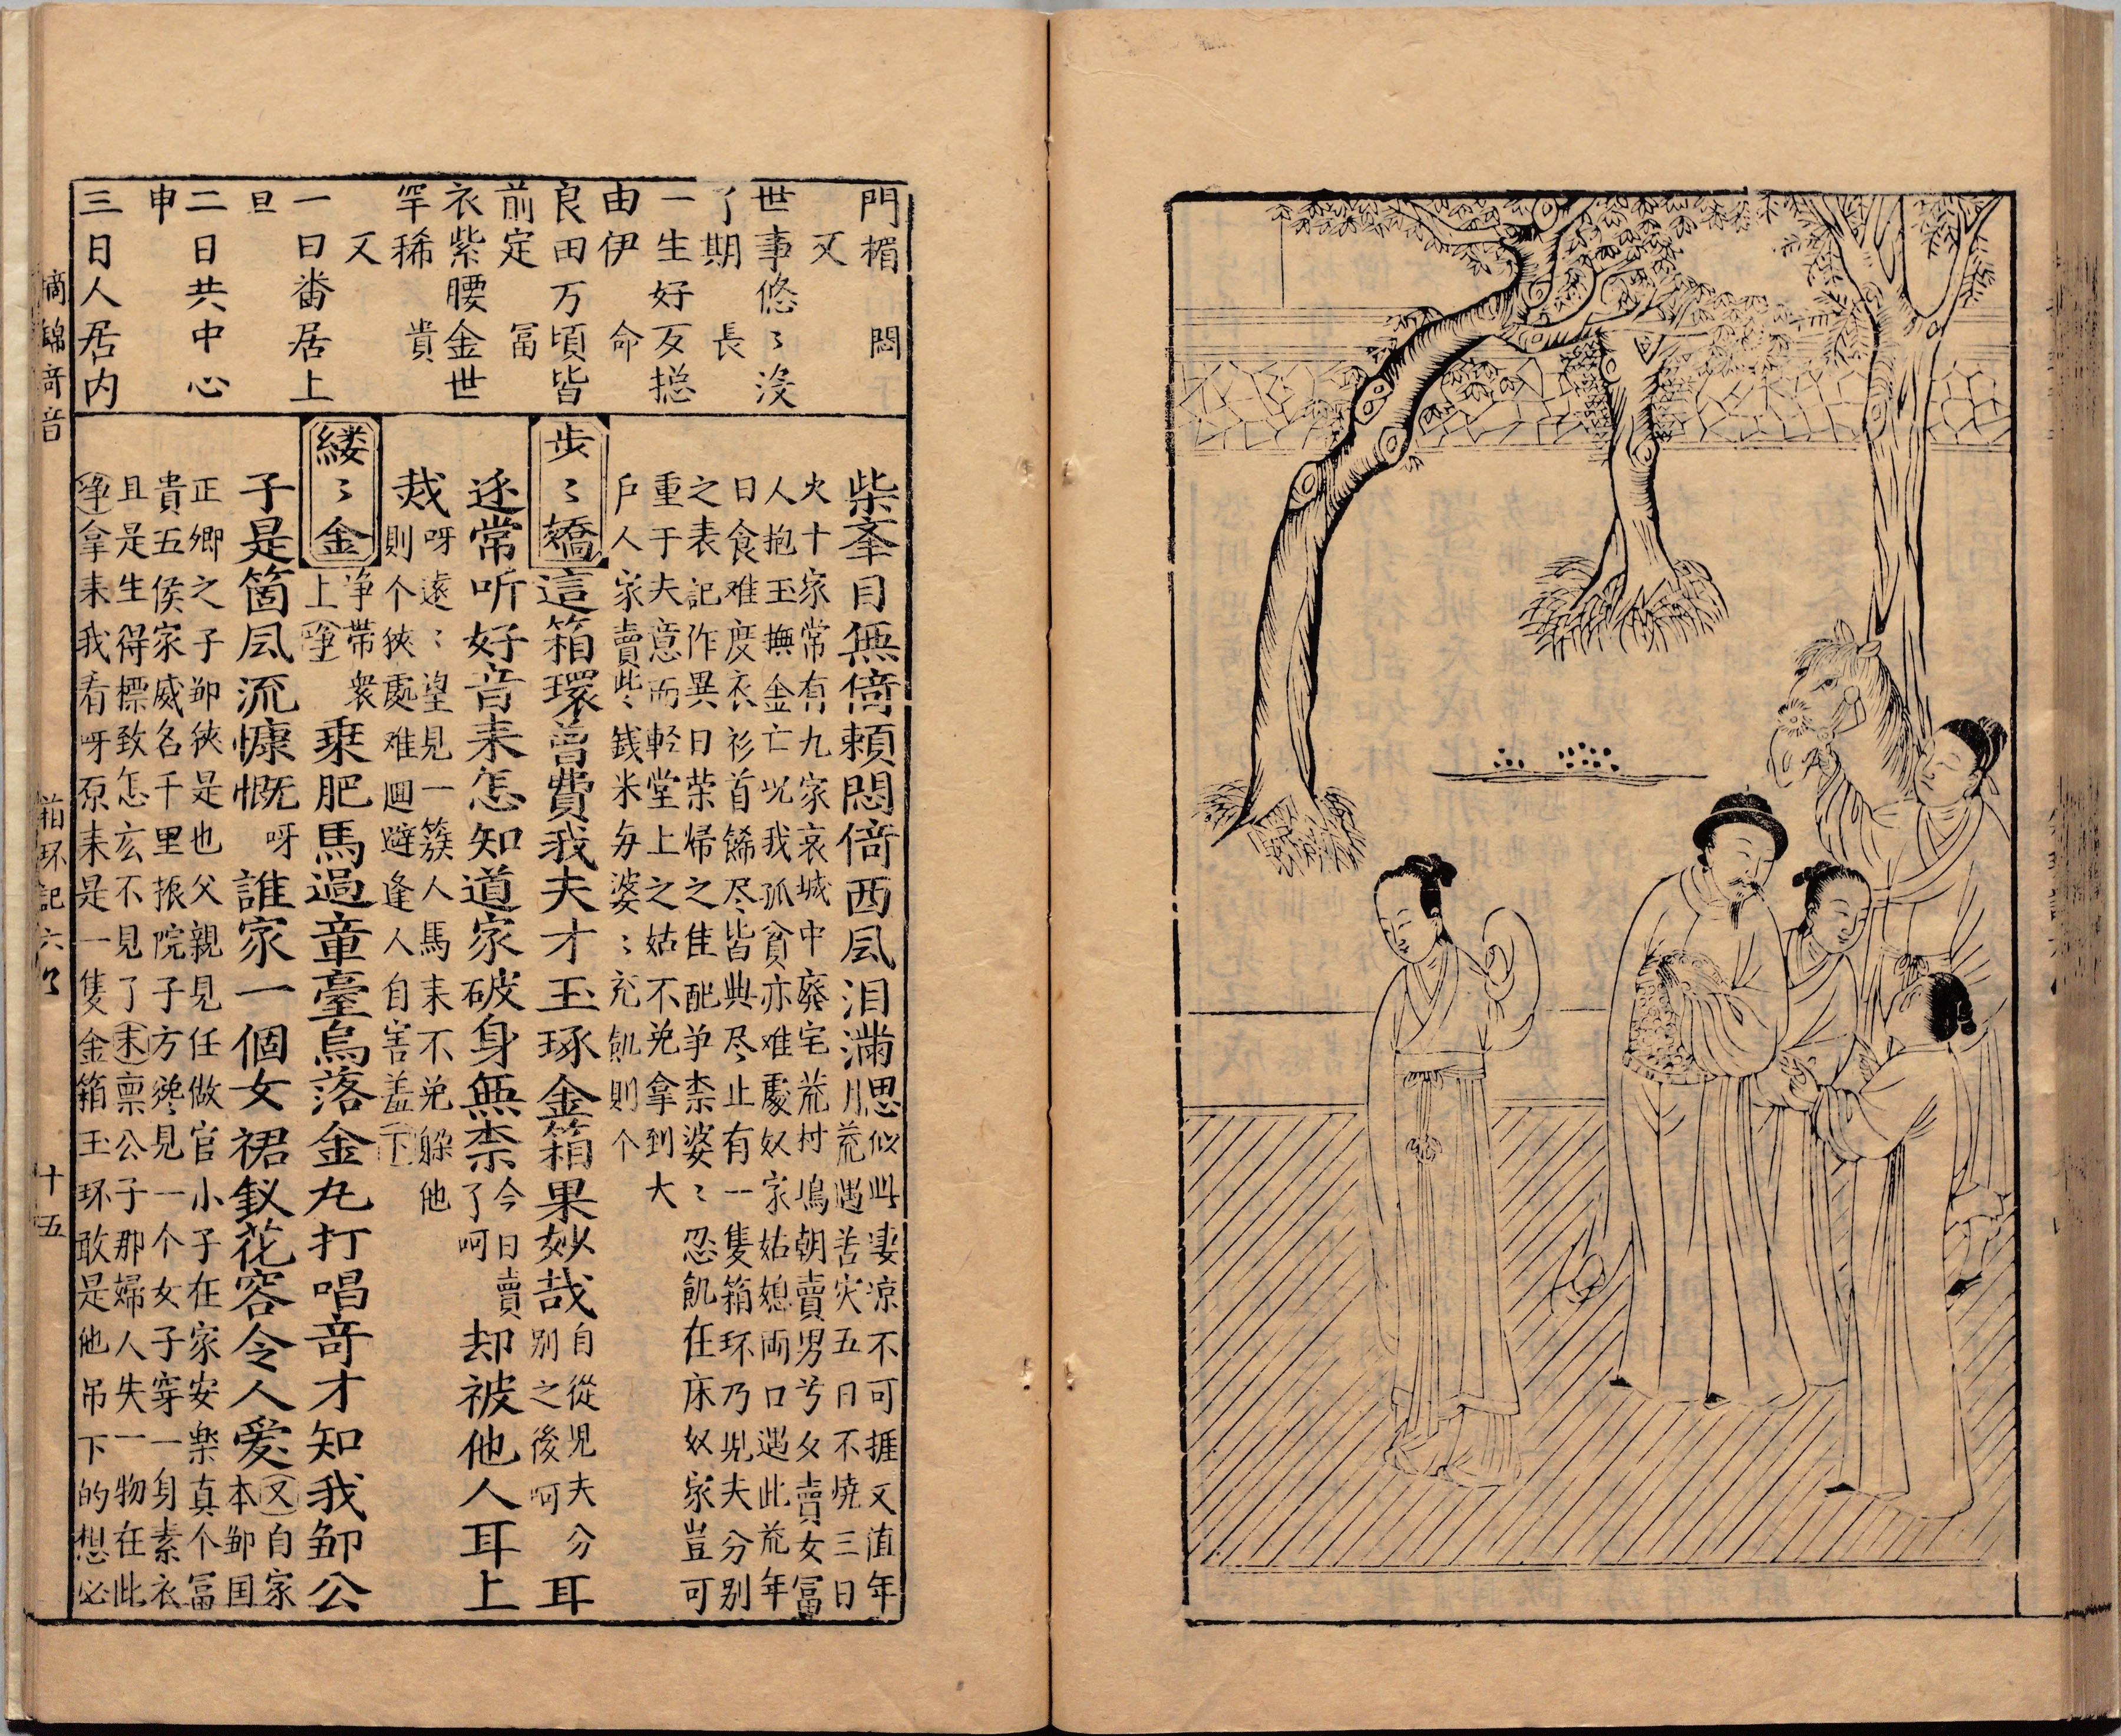 門楣　悶
又
世事悠〻沒
了期　長
一生好歹捴
由伊　命
良田万頃皆
前定　冨
衣紫腰金世
罕稀　貴
又
一曰畨居上
旦
二日共中心
申
三日人居内
柴夆目無倚頼悶倚西風泪滿腮似此凄凉不可捱又值年
荒遇善灾五日不燒三日
火十家常有九家哀城中廢宅荒村塢朝賣男兮夕賣女冨
人抱玉撫金亡况我孤貧亦难處奴家姑媳両口遇此荒年
日食难度衣衫首餙尽皆典尽止有一隻箱环乃児夫分别
之表記作異日荣帰之隹配争柰婆〻忍飢在床奴家豈可
重于夫意而軽堂上之姑不免拿到大
戶人家賣些錢米与婆〻充飢則个
步〻嬌　這箱環曾費我夫才玉琢金箱果玅哉自從児夫分
别之後呵　耳
迩常听好音来怎知道家破身無柰今日賣
了呵　却被他人耳上
烖呀遠〻望見一簇人馬来不免躲他
則个狹處难廻避逢人自害羞下
縷〻金　净帶衆
上净　乗肥馬過章臺烏落金丸打唱竒才知我郇公
子是箇風流慷慨呀誰家一個女裙釵花容令人愛又自家
本郇囯
正卿之子郇狹是也父親見任做官小子在家安樂真个冨
貴五侯家威名千里振院子方纔見一个女子穿一身素衣
且是生得標致怎玄不見了末禀公子那婦人失一物在此
净拿来我看呀原来是一隻金箱玉环敢是他吊下的想必
摘錦奇音　箱环記六　十五